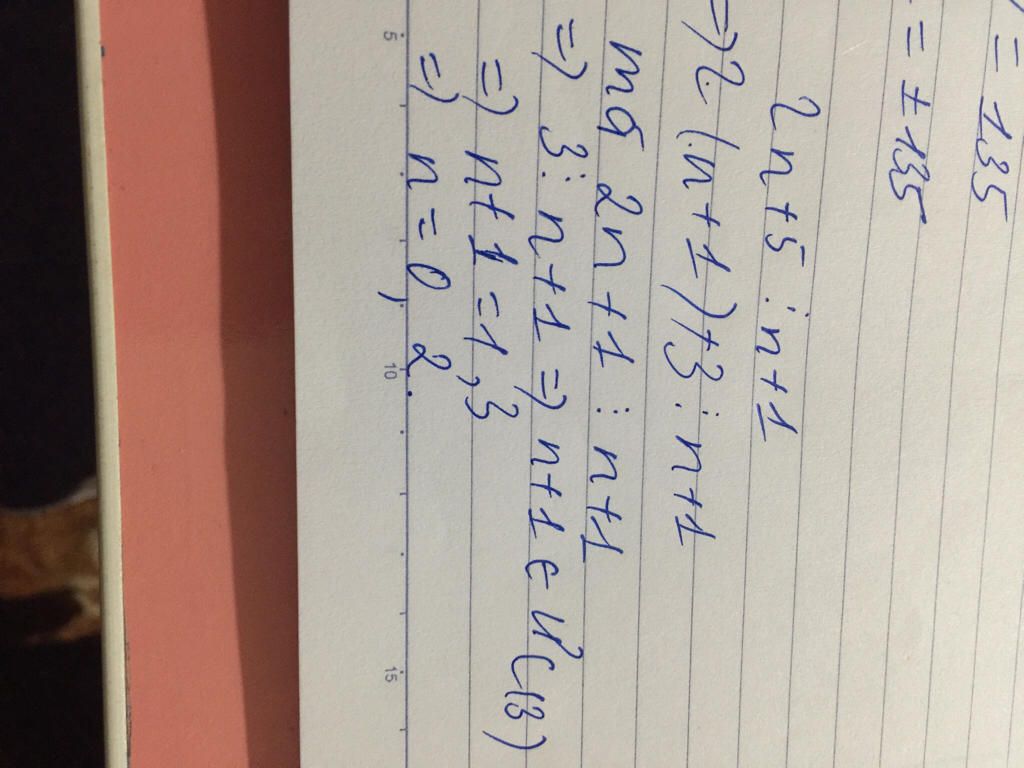 = 135
= ± 135
2n+5 ⋮ n+1
=> 2.(n+1)+3 ⋮ n+1
mà 2n+1 ⋮ n+1
=> 3 ⋮ n+1 => n+1 ∈ Ư(3)
=> n+1 = 1, 3
=> n = 0, 2.
5
10
15